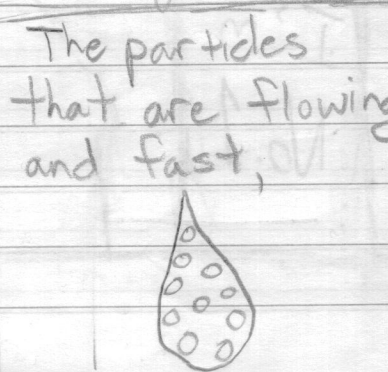 The particles
that are flowing
and fast,